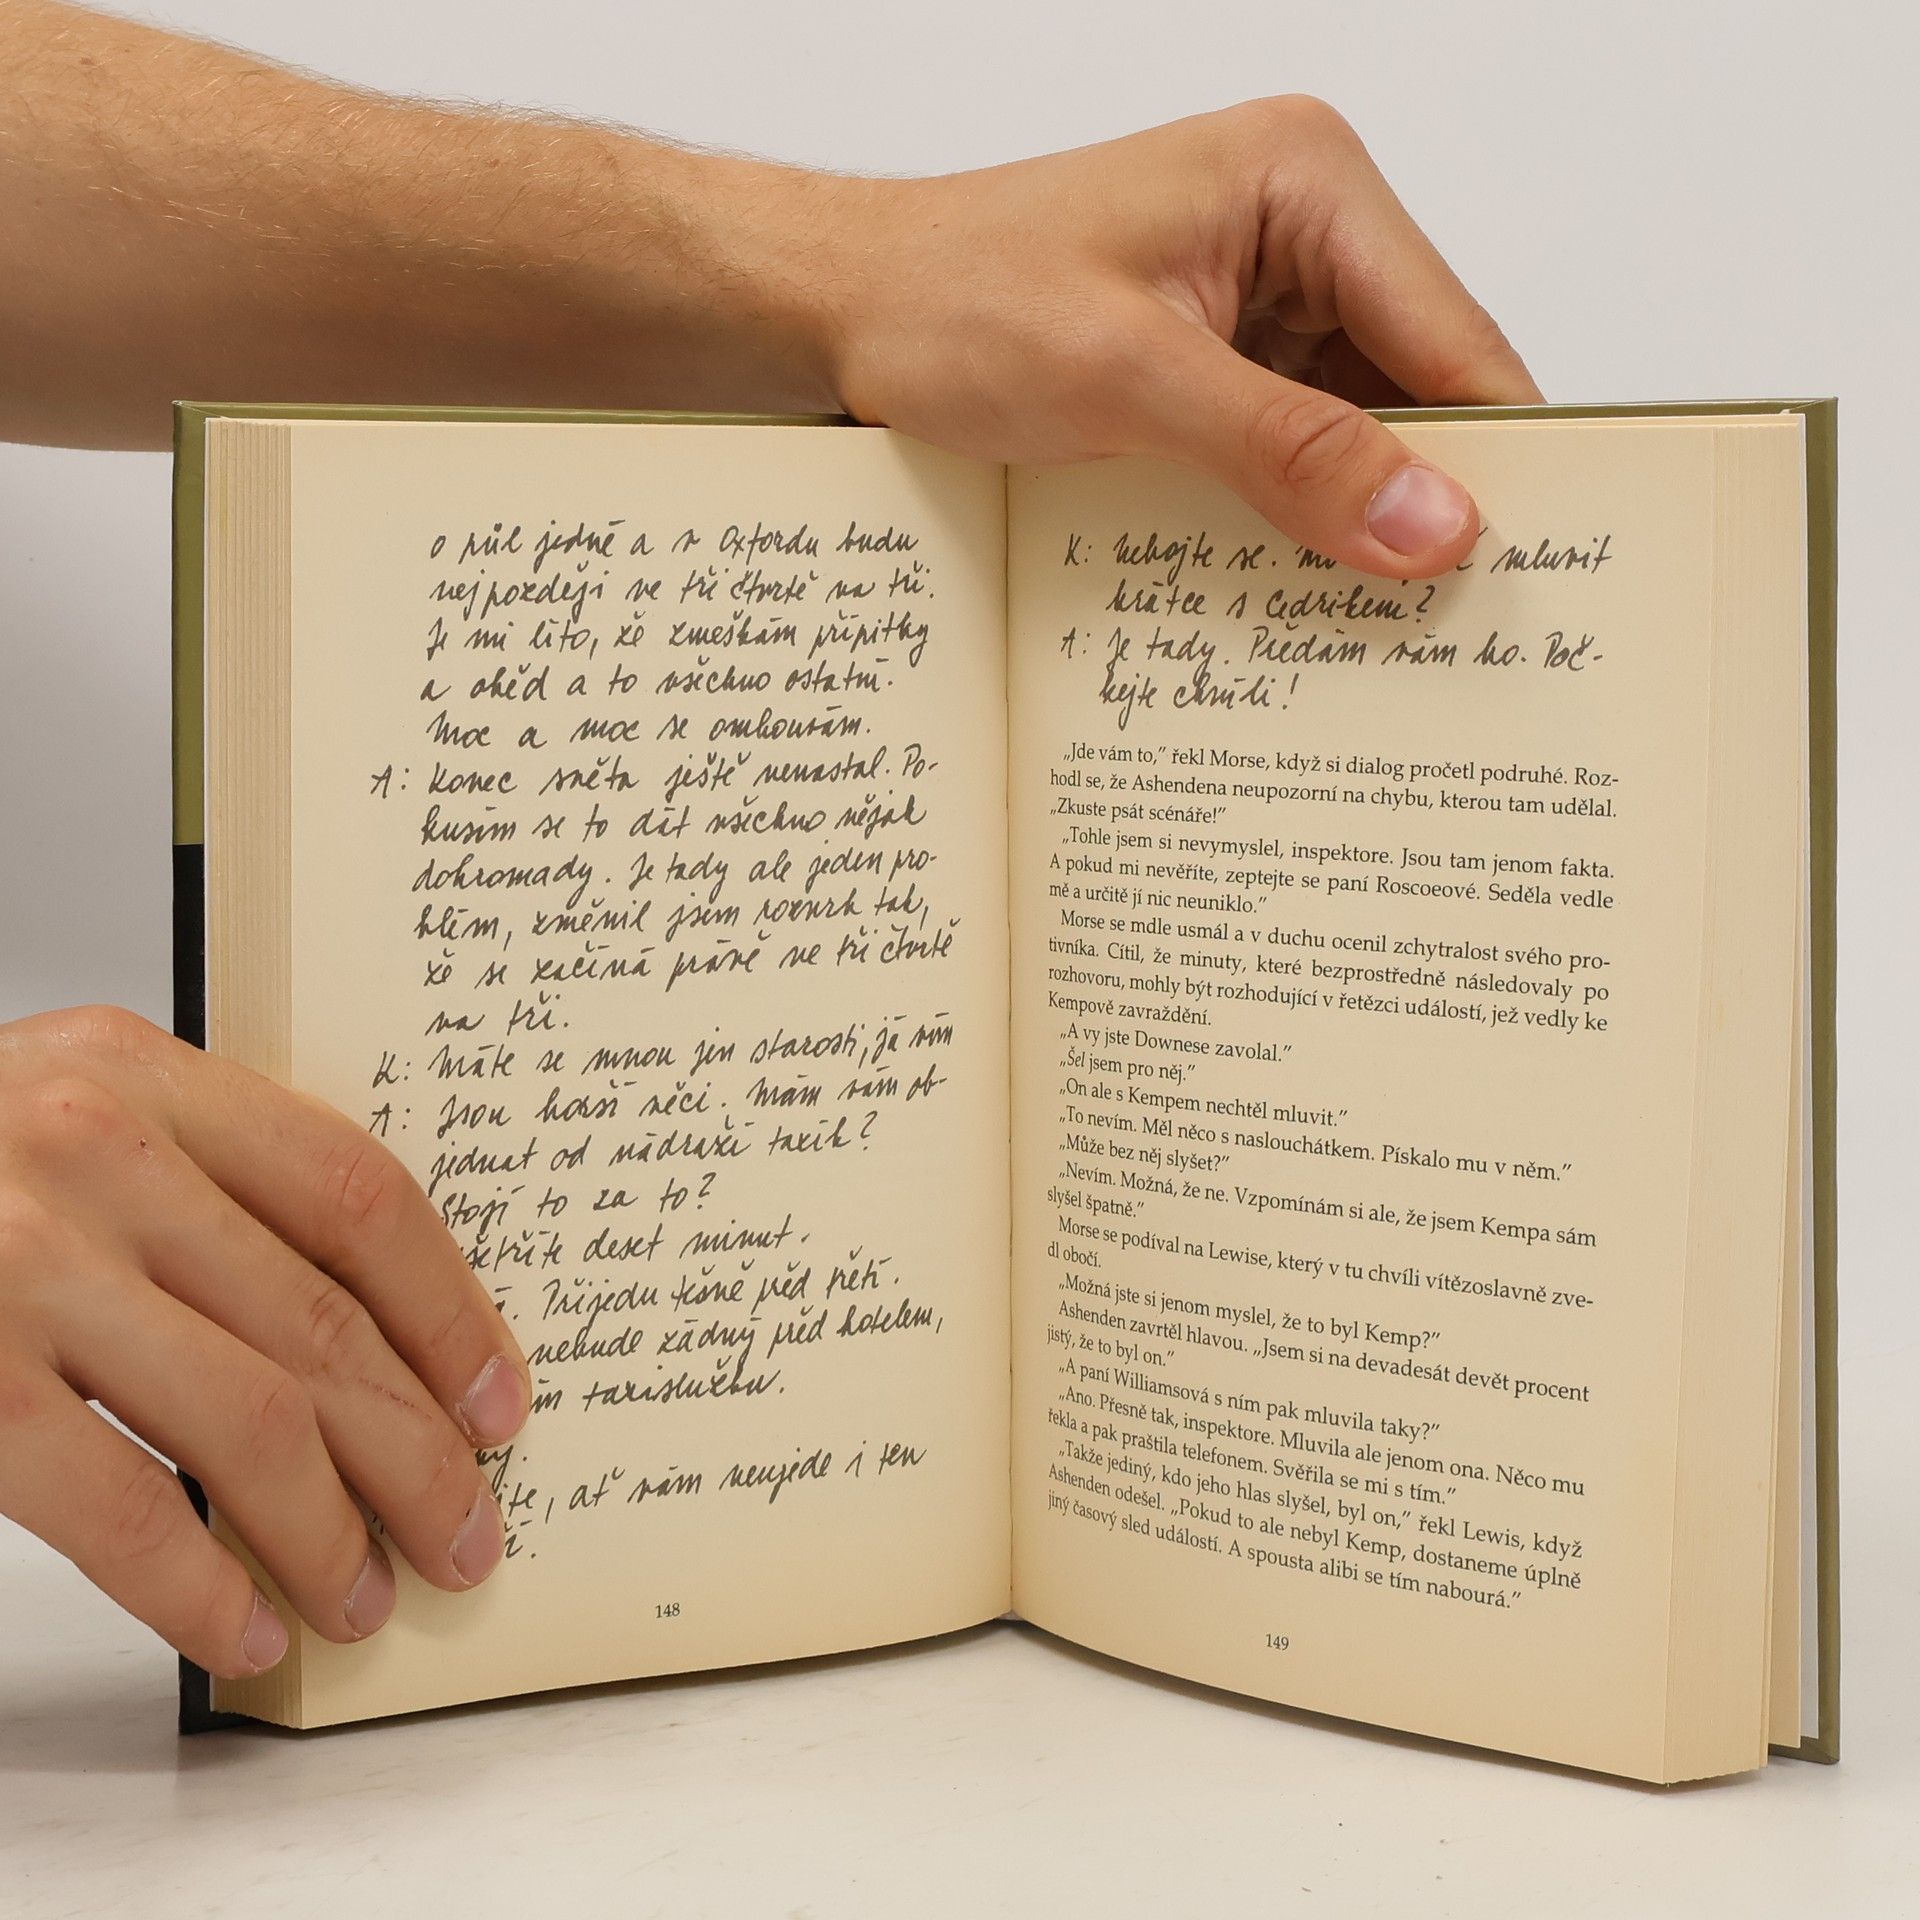 o půl jedné a v Oxfordu budu
nejpozději ve tři čtvrtě na tři.
Je mi líto, že zmeškám přípitky
a oběd a to všechno ostatní.
Moc a moc se omlouvám.
A: Konec světa ještě nenastal. Po-
kusím se to dát všechno nějak
dohromady. Je tady ale jeden pro-
blém, změnil jsem rozvrh tak,
že se začíná právě ve tři čtvrtě
na tři.
K: Máte se mnou jen starosti, já vím
A: Jsou horší věci. Mám vám ob-
jednat od nádraží taxík?
Stojí to za to?
deset minut.
Přijedu těsně před třetí.
nebude žádný před hotelem,
taxislužbu.
, ať vám neujede i ten
148
K: Nebojte se. mluvit
krátce s Cedrikem?
A: Je tady. Předám vám ho. Poč-
kejte chvíli!
„Jde vám to,” řekl Morse, když si dialog pročetl podruhé. Roz-
hodl se, že Ashendena neupozorní na chybu, kterou tam udělal.
„Zkuste psát scénáře!”
„Tohle jsem si nevymyslel, inspektore. Jsou tam jenom fakta.
A pokud mi nevěříte, zeptejte se paní Roscoeové. Seděla vedle
mě a určitě jí nic neuniklo.”
Morse se mdle usmál a v duchu ocenil zchytralost svého pro-
tivníka. Cítil, že minuty, které bezprostředně následovaly po
rozhovoru, mohly být rozhodující v řetězci událostí, jež vedly ke
Kempově zavraždění.
„A vy jste Downese zavolal.”
„Šel jsem pro něj.”
„On ale s Kempem nechtěl mluvit.”
„To nevím. Měl něco s naslouchátkem. Pískalo mu v něm.”
„Může bez něj slyšet?”
„Nevím. Možná, že ne. Vzpomínám si ale, že jsem Kempa sám
slyšel špatně.”
Morse se podíval na Lewise, který v tu chvíli vítězoslavně zve-
dl obočí.
„Možná jste si jenom myslel, že to byl Kemp?”
Ashenden zavrtěl hlavou. „Jsem si na devadesát devět procent
jistý, že to byl on.”
„A paní Williamsová s ním pak mluvila taky?”
„Ano. Přesně tak, inspektore. Mluvila ale jenom ona. Něco mu
řekla a pak praštila telefonem. Svěřila se mi s tím.”
„Takže jediný, kdo jeho hlas slyšel, byl on,” řekl Lewis, když
Ashenden odešel. „Pokud to ale nebyl Kemp, dostaneme úplně
jiný časový sled událostí. A spousta alibi se tím nabourá.”
149